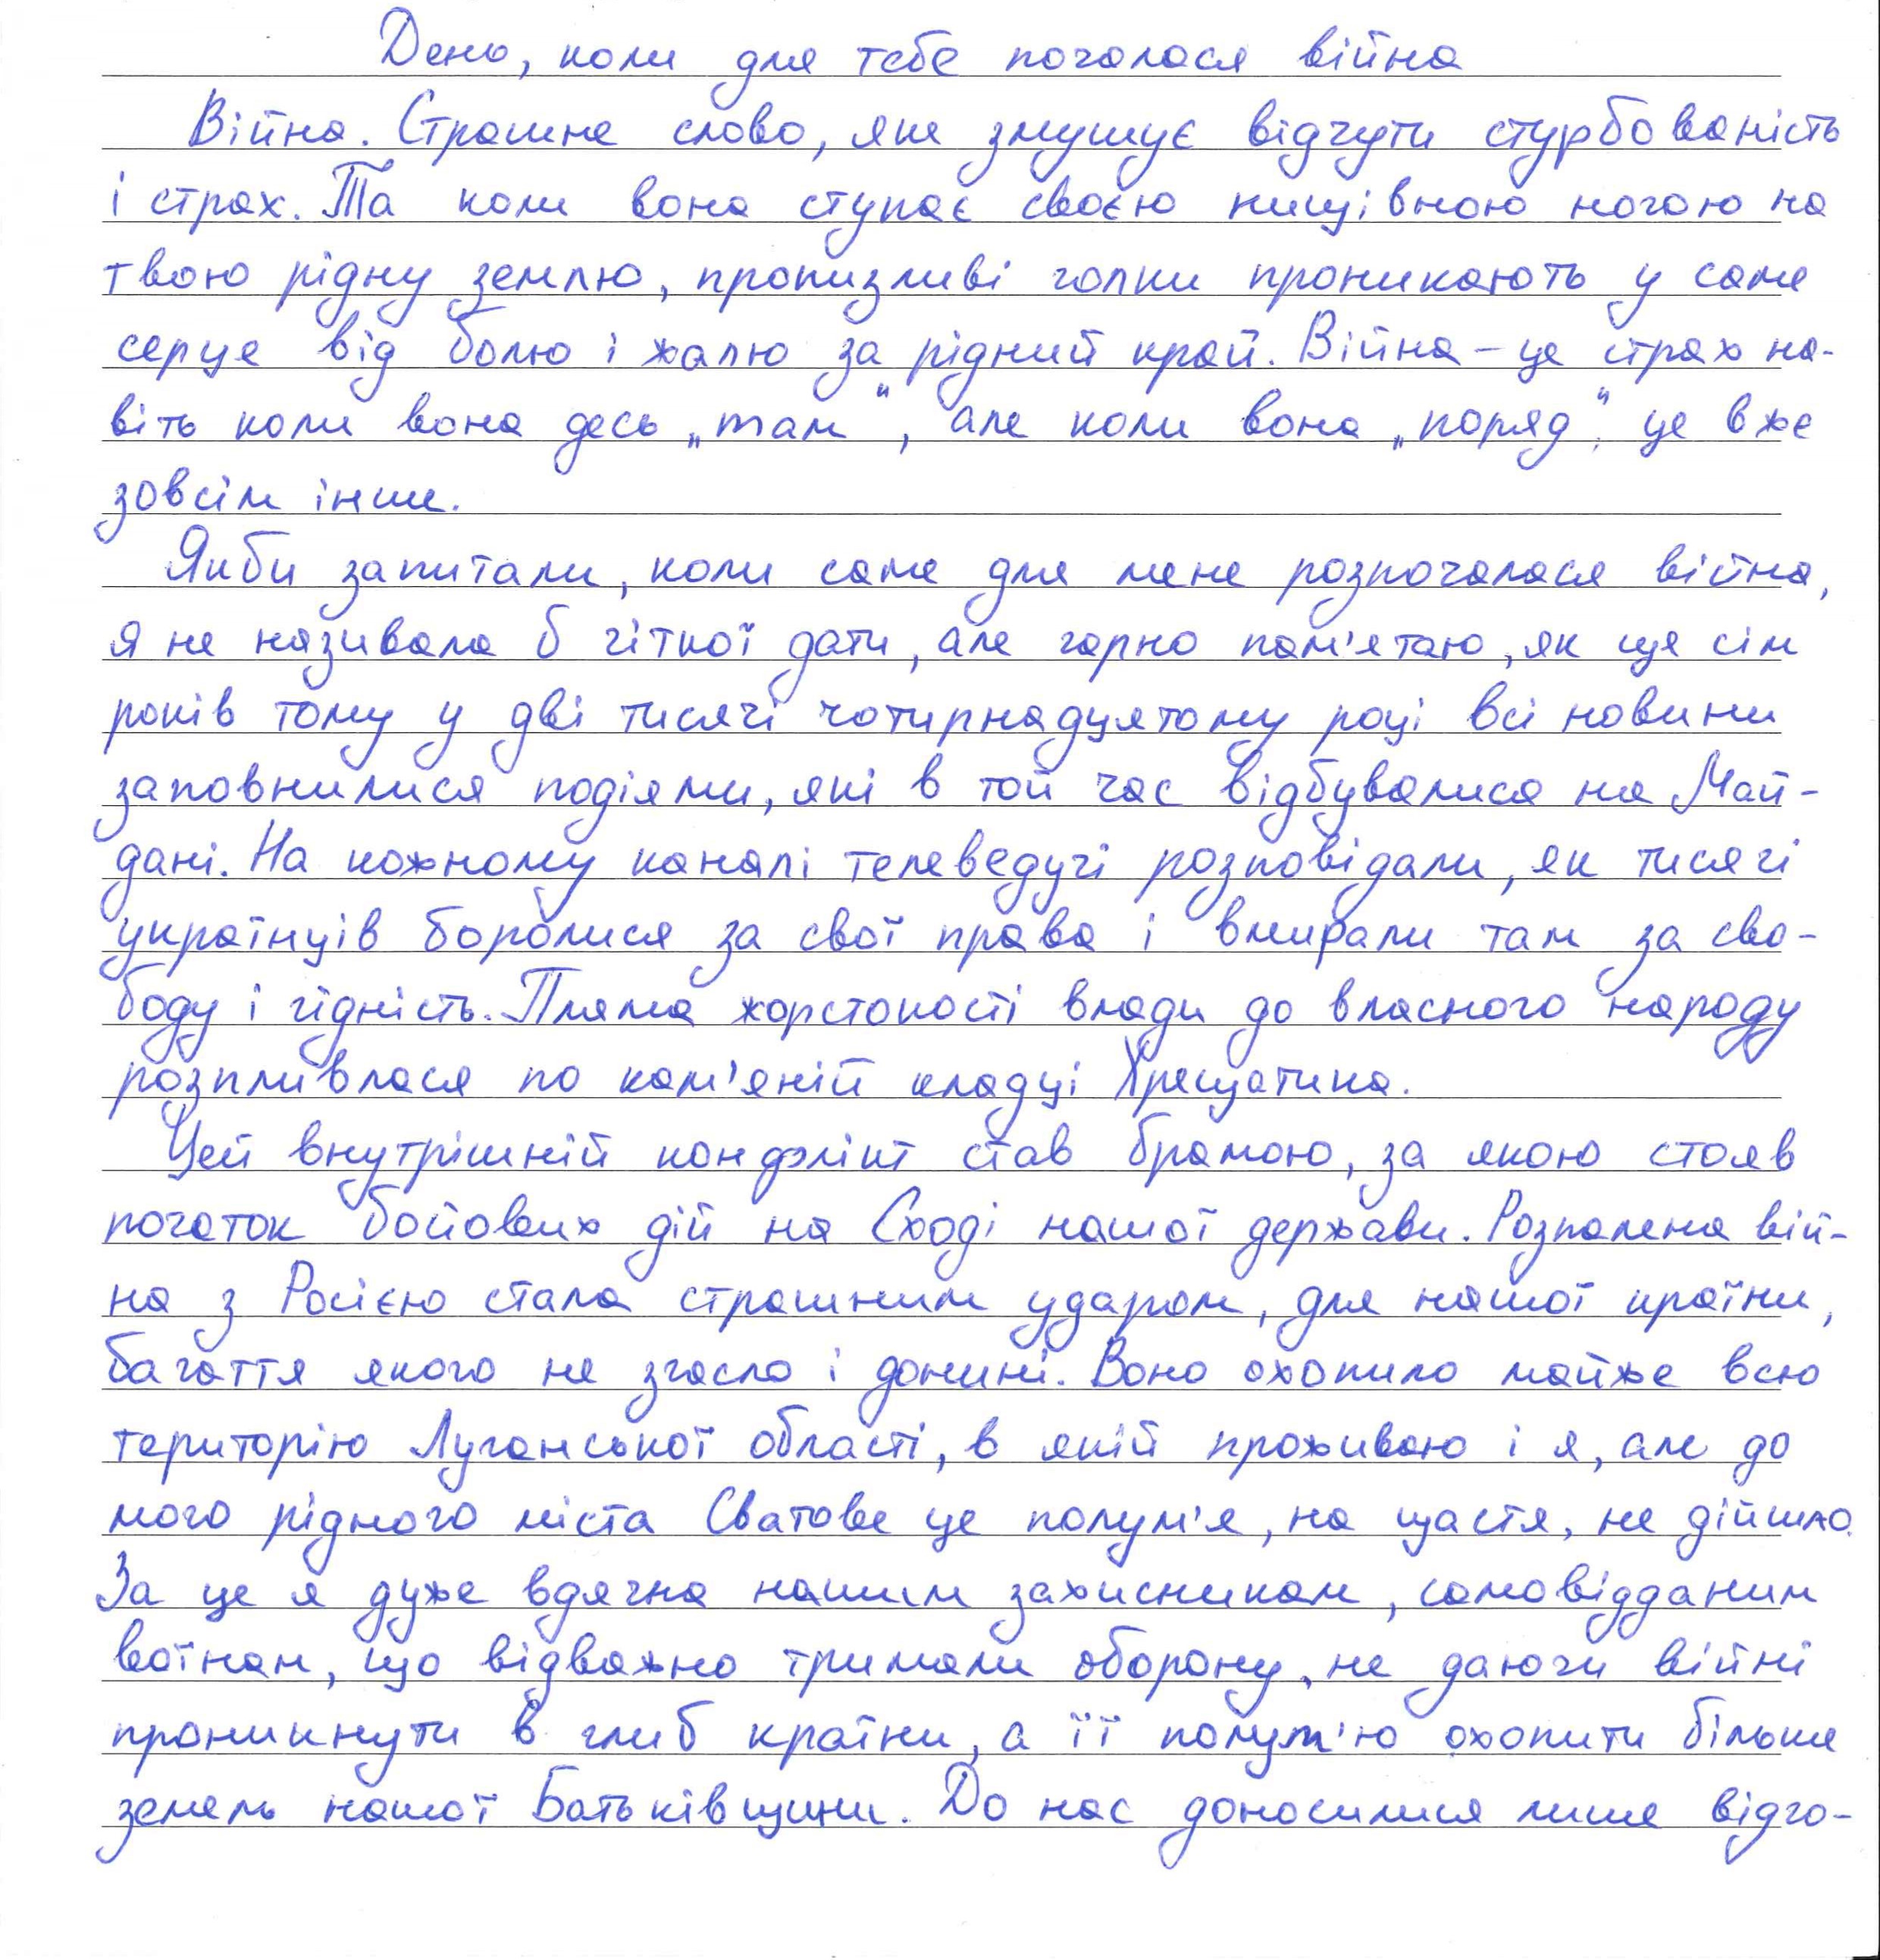 День, коли для тебе почалася війна
Війна. Страшне слово, яке змушує відчути стурбованість
і страх. Та коли вона ступає своєю нищівною ногою на
твою рідну землю, пронизливі голки проникають у саме
серце від болю і жалю за рідний край. Війна – це страх на-
віть коли вона десь „там", але коли вона „поряд", це вже
зовсім інше.
Якби запитали, коли саме для мене розпочалася війна,
я не називала б чіткої дати, але гарно пам'ятаю, як ще сім
років тому у дві тисячі чотирнадцятому році всі новини
заповнилися подіями, які в той час відбувалися на Май-
дані. На кожному каналі телеведучі розповідали, як тисячі
українців боролися за свої права і вмирали там за сво-
боду і гідність. Пляма жорстокості влади до власного народу
розпливлася по кам'яній кладці Хрещатика.
Цей внутрішній конфлікт став брамою, за якою стояв
початок бойових дій на Сході нашої держави. Розпалена вій-
на з Росією стала страшним ударом, для нашої країни,
багаття якого не згасло і донині. Воно охопило майже всю
територію Луганської області, в якій проживаю і я, але до
мого рідного міста Сватове це полум'я, на щастя, не дійшло.
За це я дуже вдячна нашим захисникам, самовідданим
воїнам, що відважно тримали оборону, не даючи війні
проникнути в глиб країни, а її полум'ю охопити більше
земель нашої Батьківщини. До нас доносилися лише відго-